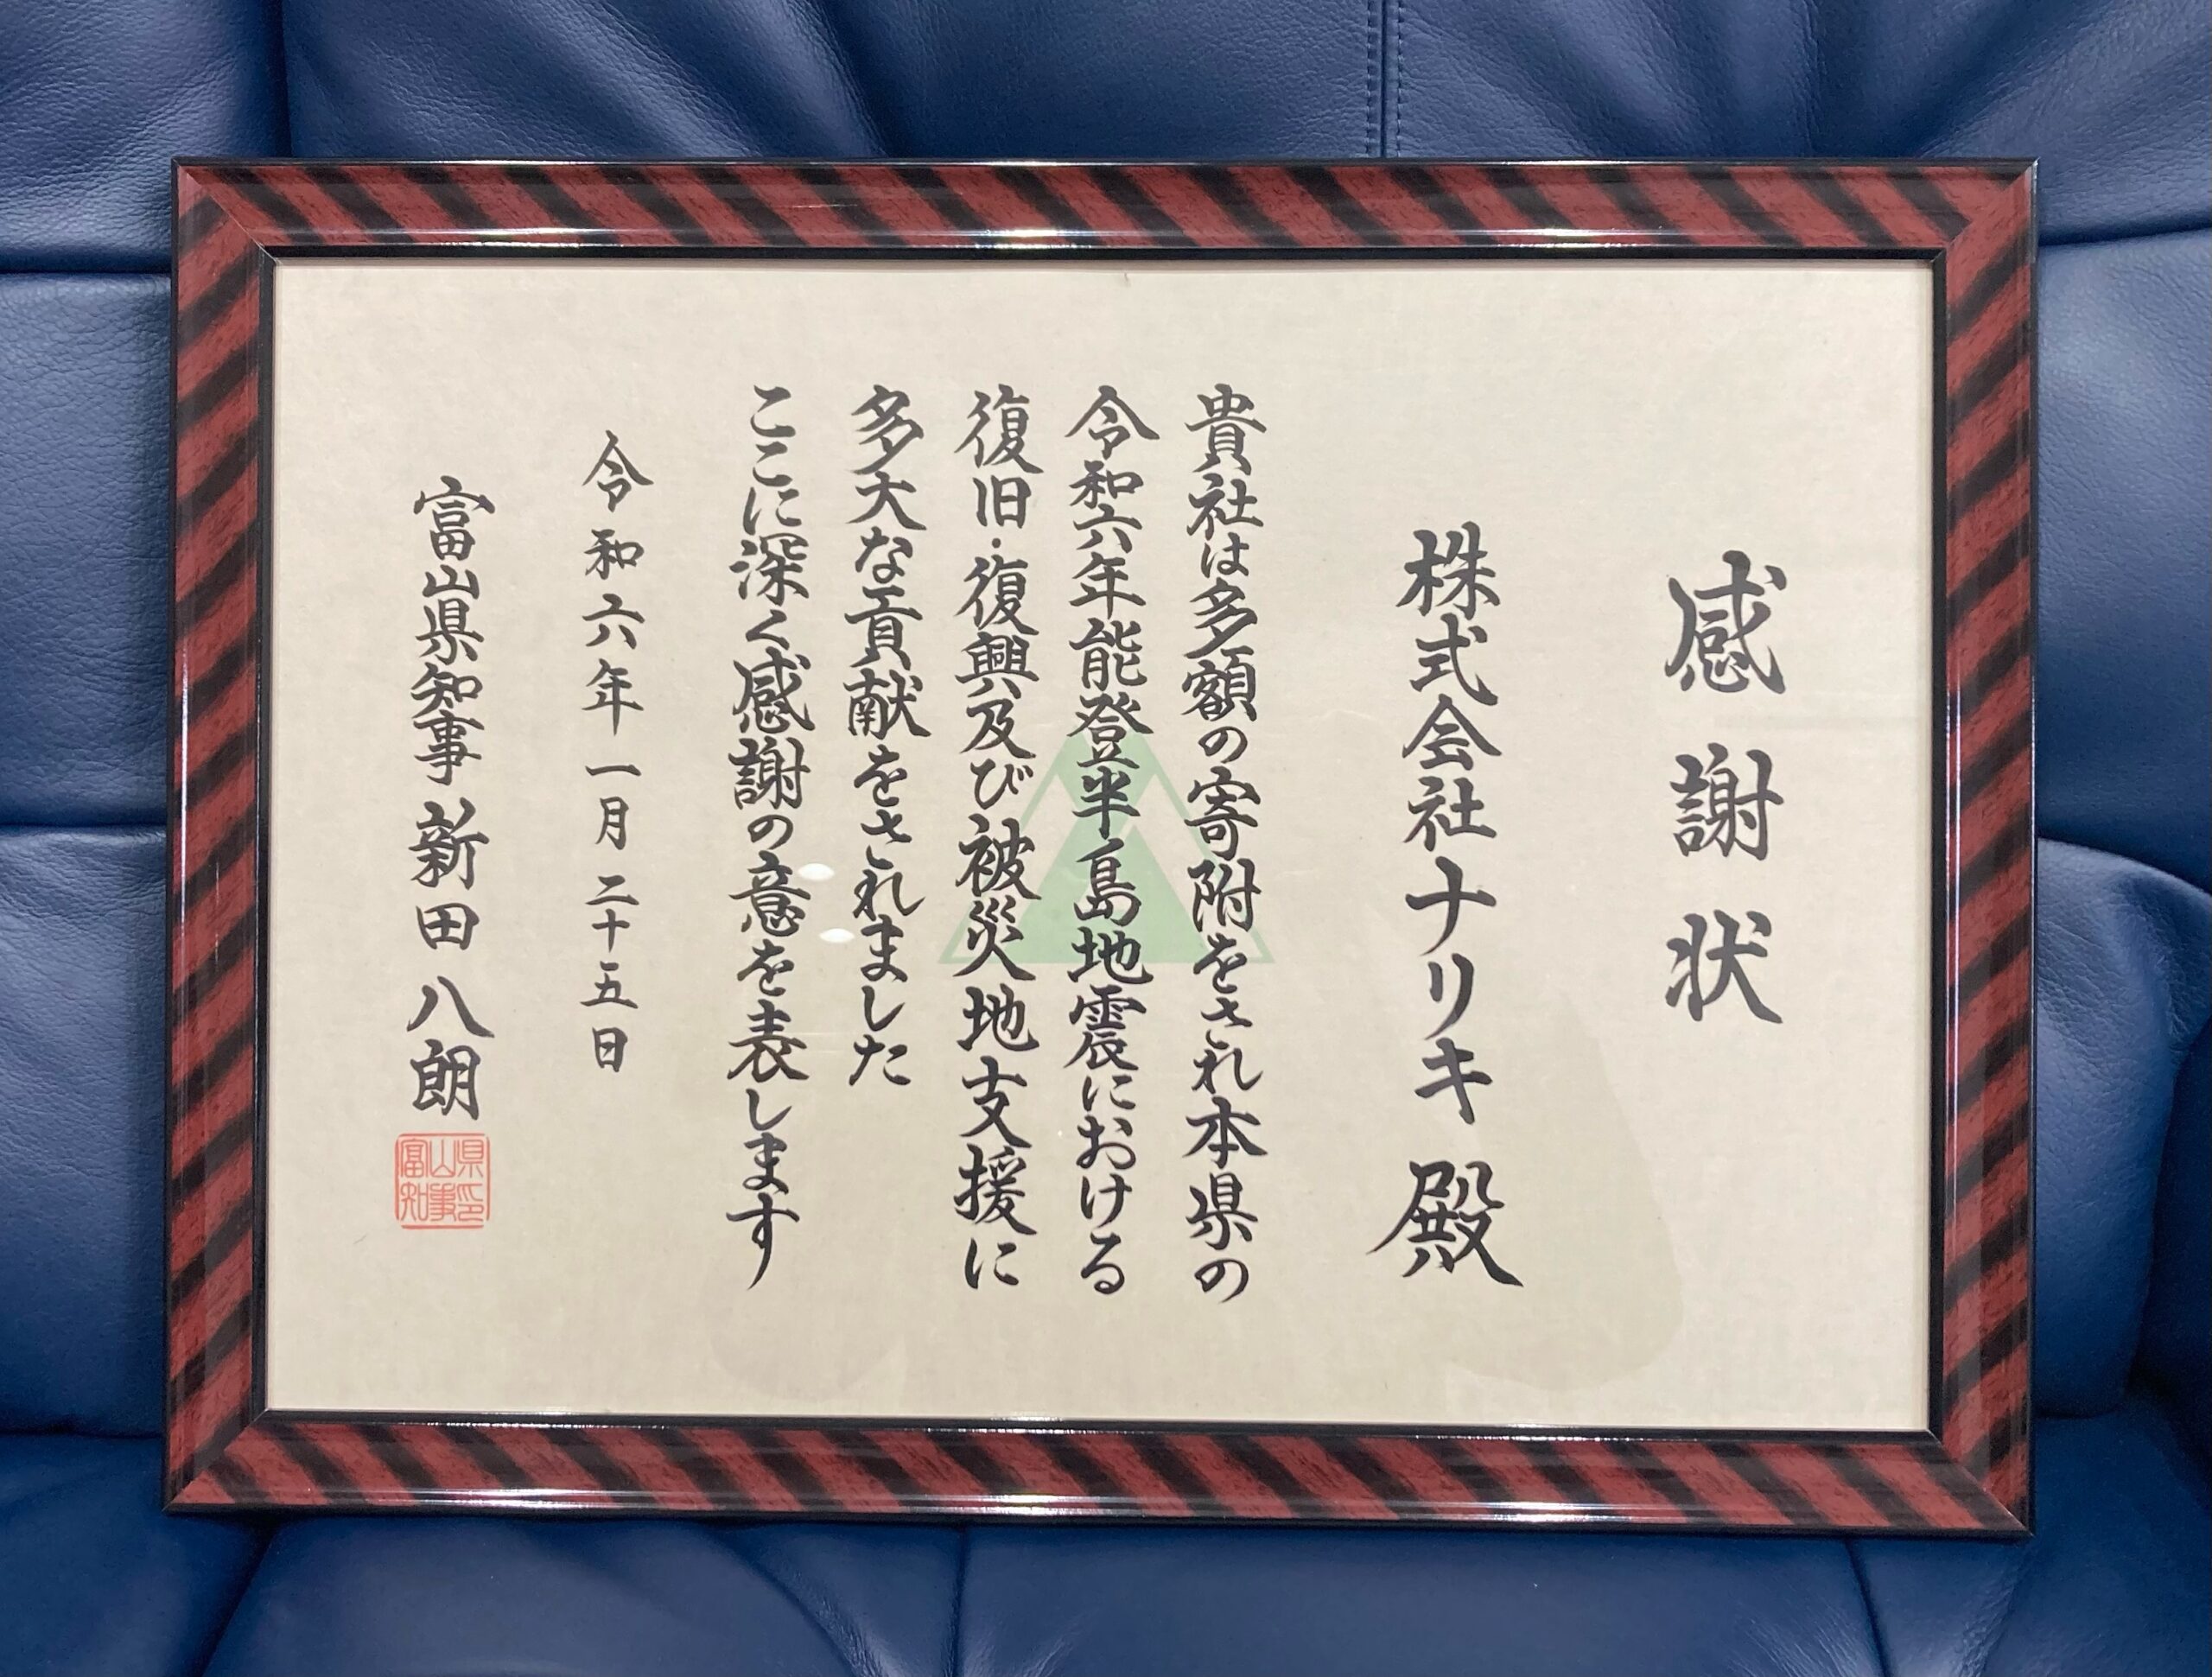 感謝状
株式会社ナリキ 殿
貴社は多額の寄附をされ本県の
令和六年能登半島地震における
復旧・復興及び被災地支援に
多大な貢献をされました
ここに深く感謝の意を表します
令和六年一月二十五日
富山県知事 新田八朗
富山県知事印